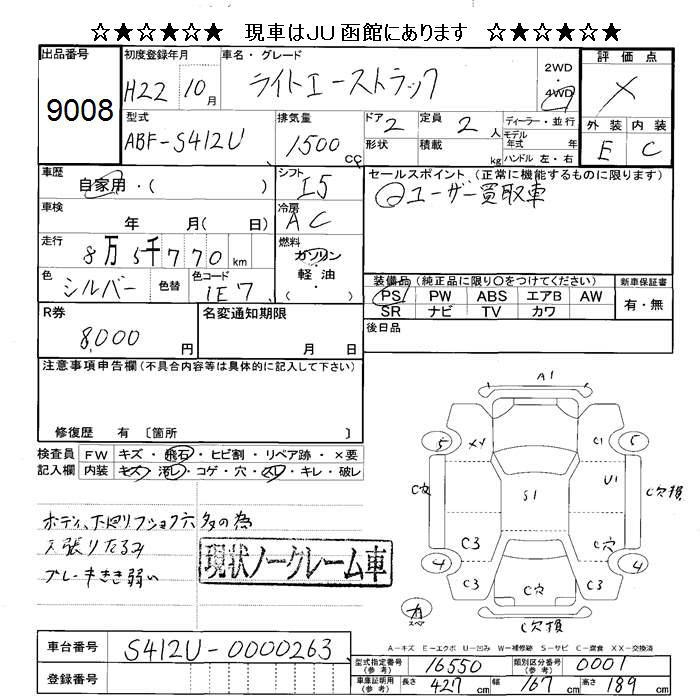 ☆★☆★☆★ 現車はJU函館にあります ☆★☆★☆★
出品番号
9008
初度登録年月
H22 10月
車名・グレード
ライトエーストラック
2WD
・
4WD
評価点
X
外装 内装
E C
型式
ABF-S412U
排気量
1500 CC
ドア 2
形状
定員 2 人
積載 kg
ディーラー・並行
モデル年式 年
ハンドル 左・右
車歴
自家用・( )
シフト
I5
車検
年 月( 日)
冷房
AC
走行
8万5千770 km
燃料
ガソリン
軽油
・( )
色
シルバー
色替
色コード
1E7
セールスポイント (正常に機能するものに限ります)
②ユーザー買取車
装備品 (純正品に限り〇をつけてください)
PS PW ABS エアB AW
SR ナビ TV カワ
新車保証書
有・無
後日品
R券
8,000 円
名変通知期限
月 日
注意事項申告欄 (不具合内容等は具体的に記入して下さい)
修復歴 有 〔箇所 〕
検査員記入欄
FW キズ・飛石・ヒビ割・リペア跡・×要
内装 キズ・汚レ・コゲ・穴・スレ・キレ・破レ
ボディ、下廻りフショク穴多の為
天張りたるみ
ブレーキきき弱い
現状ノークレーム車
A1
5 XY C1 5
C穴 S1 U1 C欠損
C3 C穴
4 C3 C穴 C3 4
スペア
C欠損
A−キズ E−エクボ U−凹み W−補修跡 S−サビ C−腐食 XX−交換済
車台番号
S412U-0000263
登録番号
型式指定番号(参考) 16550
類別区分番号(参考) 0001
車庫証明用(参考) 長さ 427 cm 幅 167 cm 高さ 189 cm